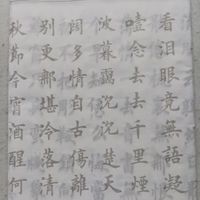 看泪眼竟無語凝
噎念去去千里煙
波暮靄沉沉楚天
闊多情自古傷離
别更那堪冷落清
秋節今宵酒醒何